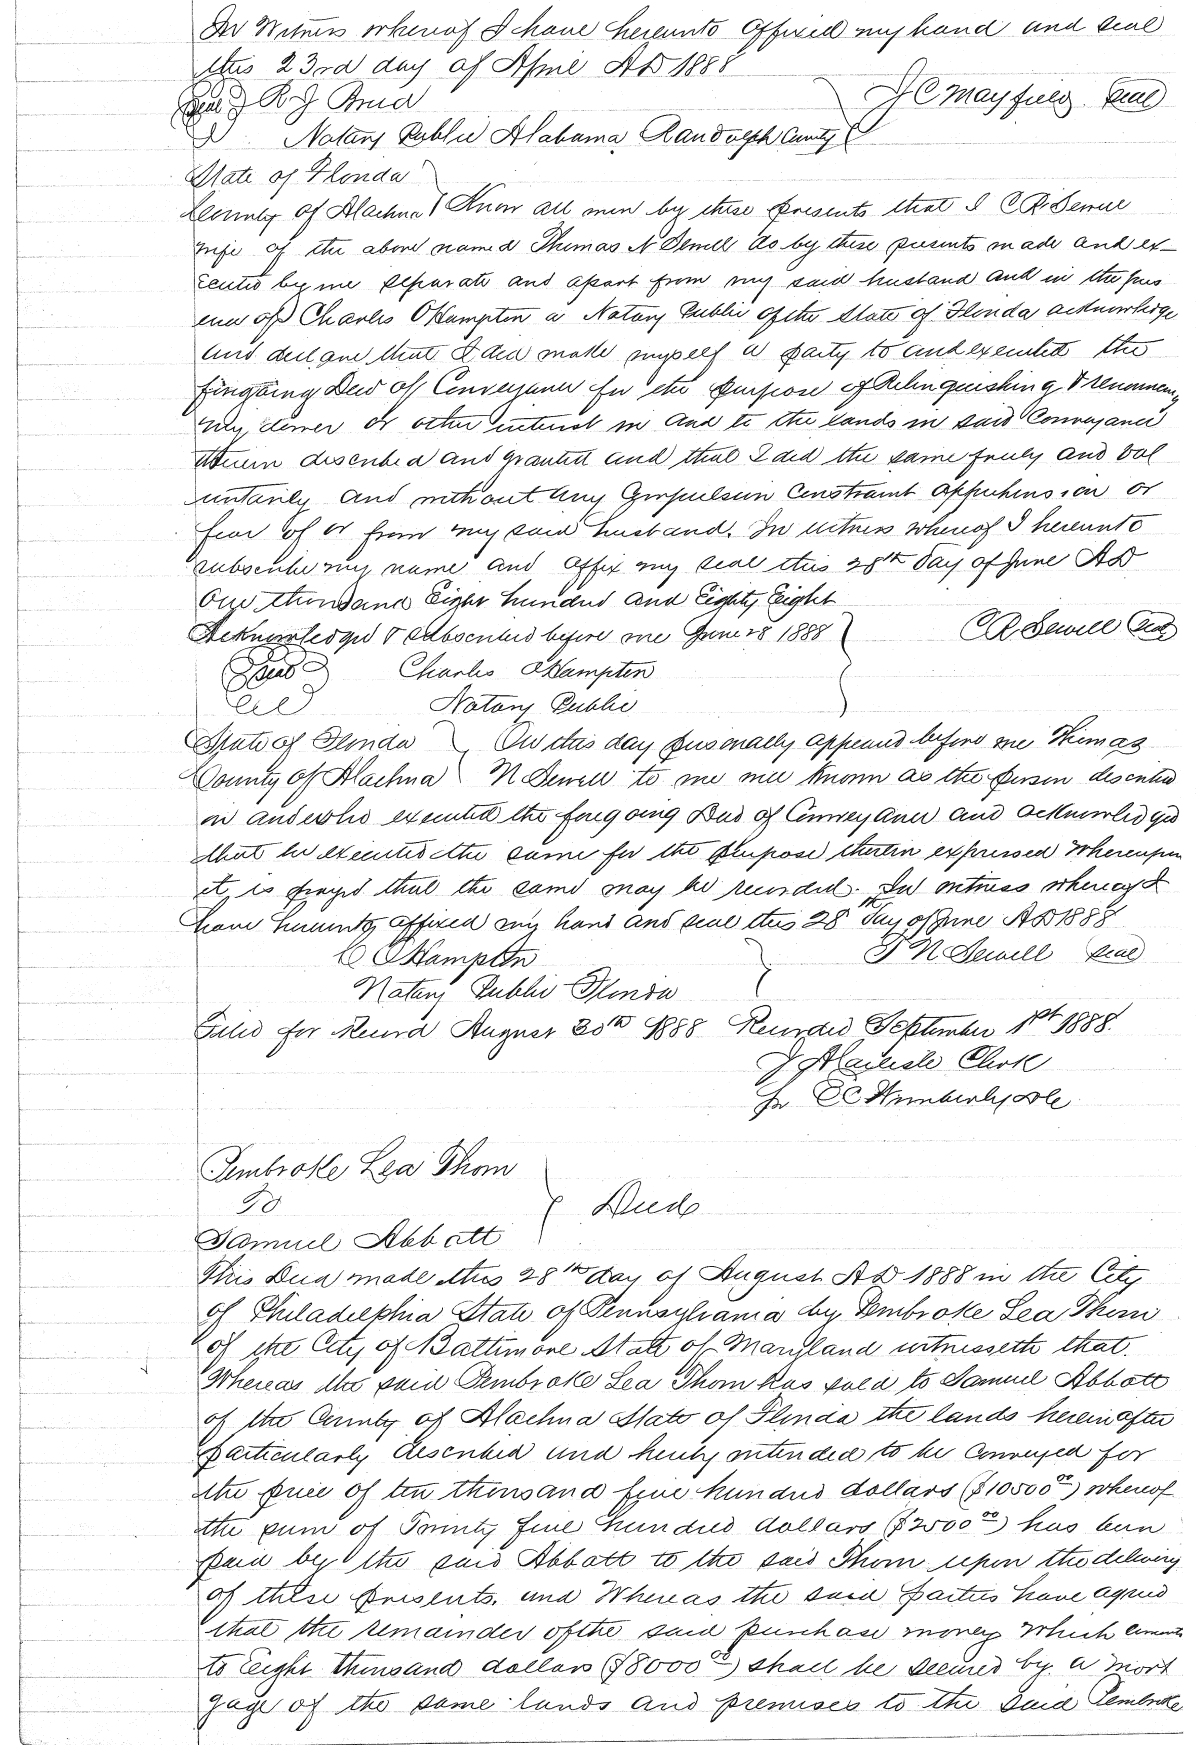 In Witness whereof I have hereunto affixed my hand and seal
this 23rd day of April AD 1888
Seal R J Brid J C Mayfield Seal
Notary Public Alabama Randolph County
State of Florida
County of Alachua Know all men by these presents that I C R Sewell
wife of the above named Thomas N Sewell do by these presents made and ex-
ecuted by me separate and apart from my said husband and in the pres
ence of Charles O Hampton a Notary Public of the State of Florida acknowledge
and declare that I did make myself a party to and executed the
foregoing Deed of Conveyance for the purpose of Relinquishing & renouncing
my dower or other interest in and to the lands in said Conveyance
therein described and granted and that I did the same freely and vol
untarily and without any Compulsion Constraint apprehension or
fear of or from my said husband. In witness whereof I hereunto
subscribe my name and affix my seal this 28th day of June AD
One thousand Eight hundred and Eighty Eight
Acknowledged & subscribed before me June 28 1888 C R Sewell Seal
Seal Charles O Hampton
Notary Public
State of Florida On this day personally appeared before me Thomas
County of Alachua N Sewell to me well known as the person described
in and who executed the foregoing Deed of Conveyance and acknowledged
that he executed the same for the purpose therein expressed whereupon
it is prayed that the same may be recorded. In witness whereof I
have hereunto affixed my hand and seal this 28th day of June AD 1888
C O Hampton T N Sewell seal
Notary Public Florida
Filed for Record August 30th 1888 Recorded September 1st 1888.
J A Carlisle Clerk
Pr E C Wimberly D C
Pembroke Lea Thom
To Deed
Samuel Abbott
This Deed made this 28th day of August AD 1888 in the City
of Philadelphia State of Pennsylvania by Pembroke Lea Thom
of the City of Baltimore State of Maryland witnesseth that.
Whereas the said Pembroke Lea Thom has sold to Samuel Abbott
of the County of Alachua State of Florida the lands hereinafter
particularly described and hereby intended to be Conveyed for
the price of ten thousand five hundred dollars ($10500 00) whereof
the sum of Twenty five hundred dollars ($2500 00) has been
paid by the said Abbott to the said Thom upon the delivery
of these presents. and Whereas the said parties have agreed
that the remainder of the said purchase money which amounts
to Eight thousand dollars ($8000 00) shall be secured by a mort
gage of the same lands and premises to the said Pembroke